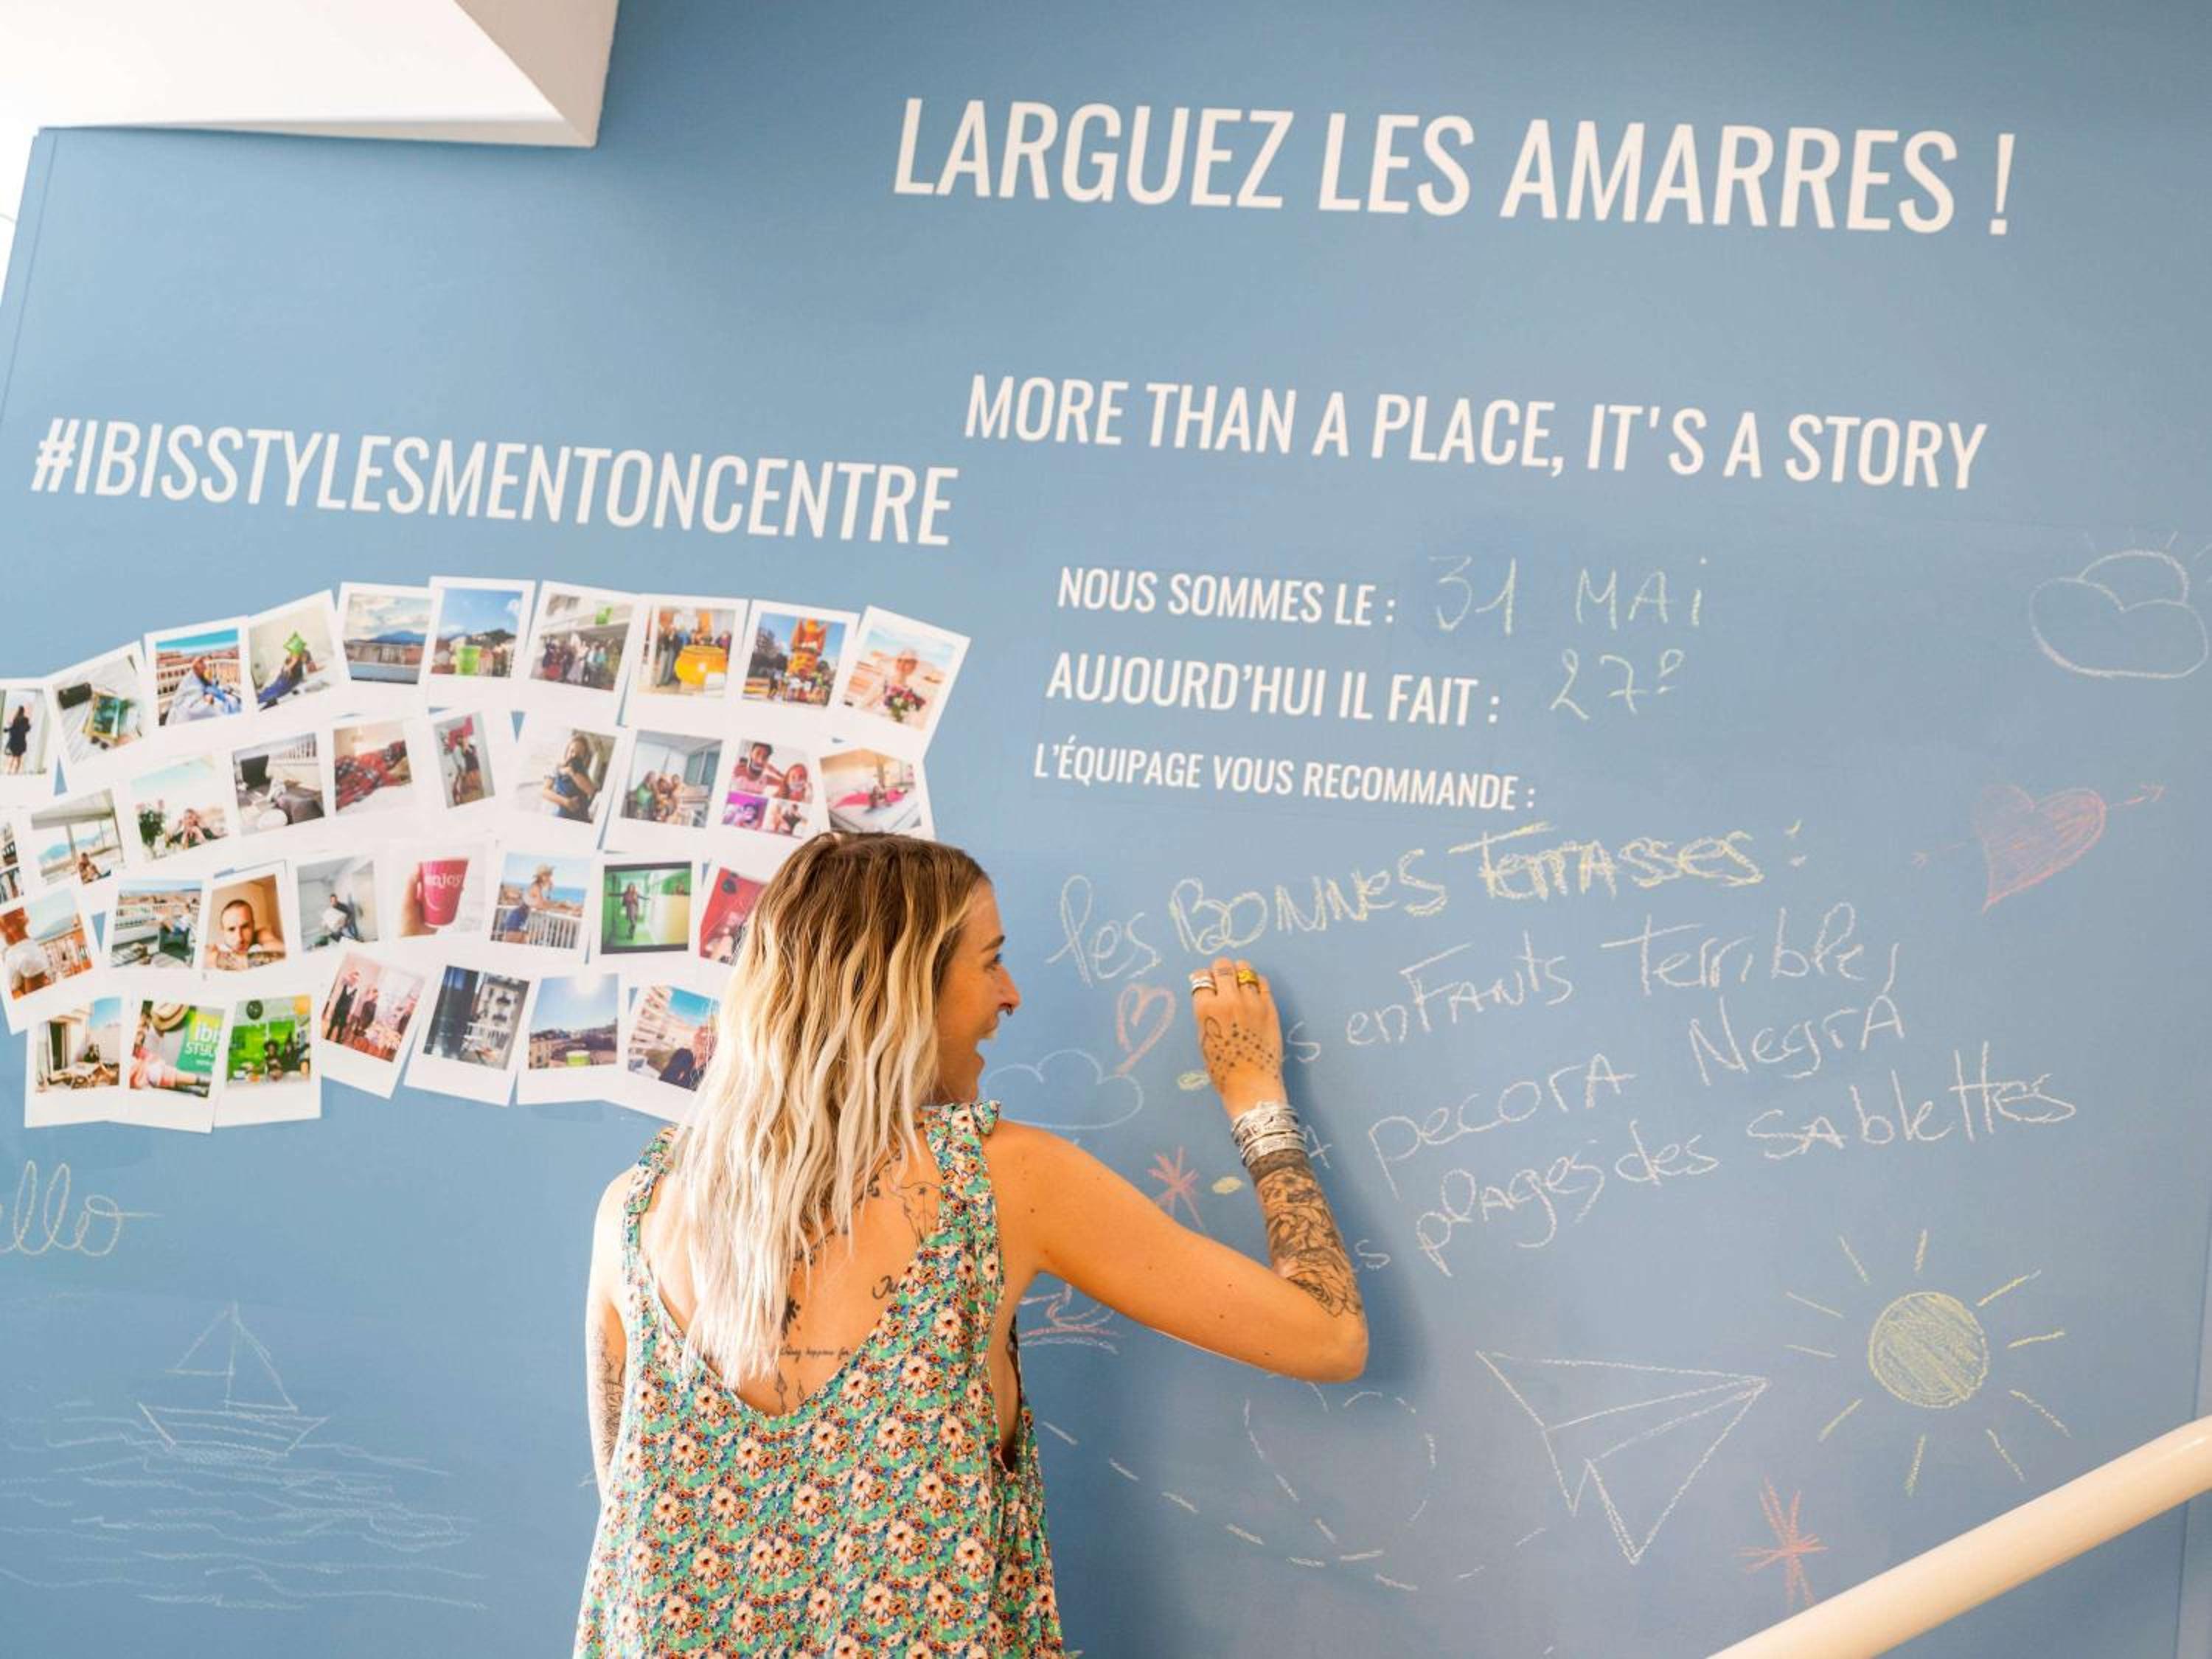 LARGUEZ LES AMARRES !
MORE THAN A PLACE, IT'S A STORY
#IBISSTYLESMENTONCENTRE
NOUS SOMMES LE : 31 MAi
AUJOURD'HUI IL FAIT : 27º
L'ÉQUIPAGE VOUS RECOMMANDE :
les BONNES TerrASSes :
enFANts Terribles
pecorA NegrA
plAges des SAblettes
enjoy